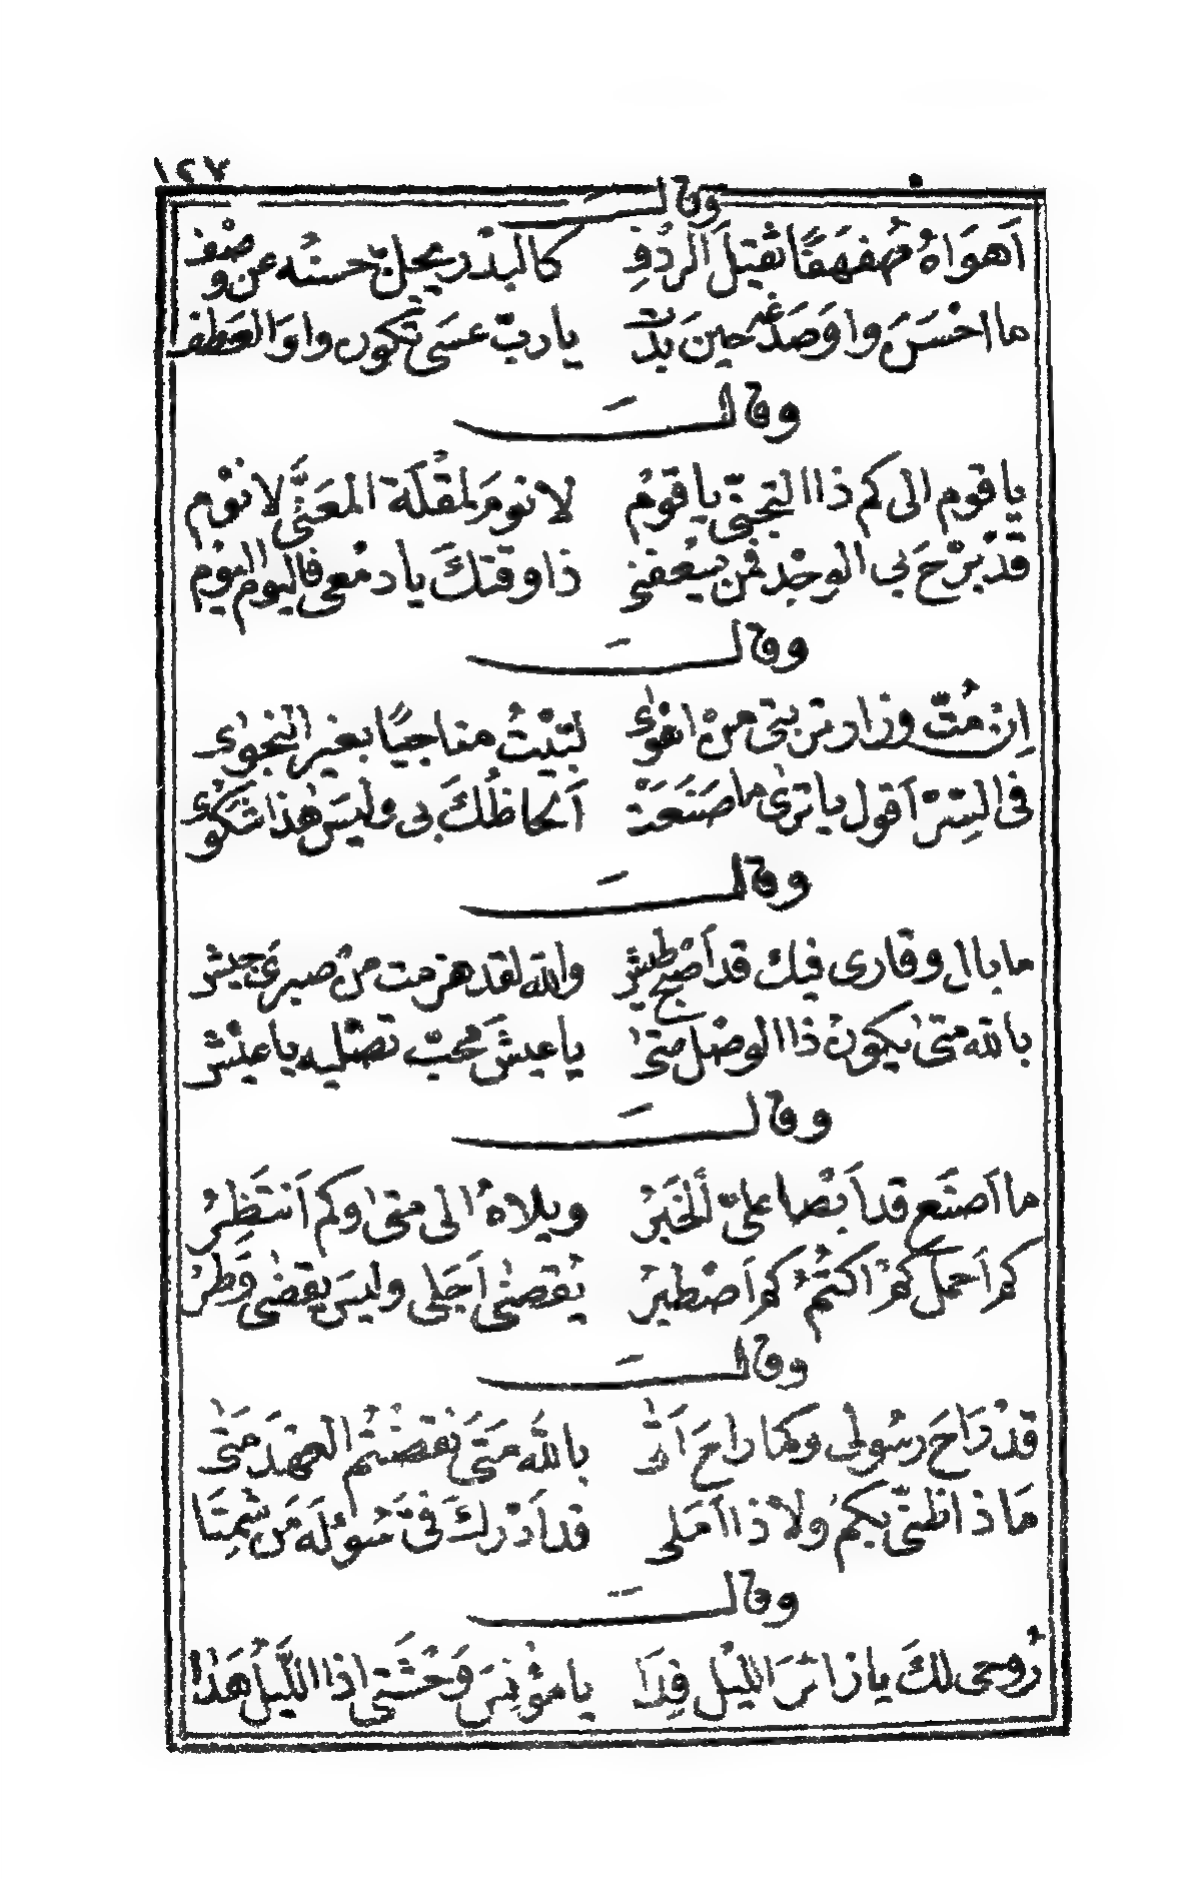 ١٤٧
وقال
أَهوَاهُ مُهَفهَفًا ثَقيلَ الرّدْفِ كالبدْر يجلّ حسنُه عن وصْف
ما احْسَنَ واوَ صَدغه حينَ بدَت يا ربّ عسَى تكون واوَ العَطف
وقالَ
يا قوم الى كم ذا التجنّى يا قومُ لا نومَ لمقْلَة المعَنَّى لا نوْم
قدْ برّحَ بي الوجْد فمن يسْعفنى ذا وقتكَ يا دمْعى فاليوم اليوم
وقالَ
اِن مُتّ وزارَ تربتى منْ اهْوىٰ لبّيْتُ مناجيًا بغير النجوىٰ
فى السِّرّ اَقول يا ترىٰ ما صَنَعَتْ اَلحاظُكَ بى وليسَ هٰذا شكَوىٰ
وقالَ
ما بال وقارى فيك قد اَصْبح طَيْش والله لقد هزمت منْ صبرى جيش
بالله متىٰ يكونُ ذا الوصْل متىٰ يا عيشَ محبّ تصْليه يا عيْش
وقالَ
ما اَصنَع قد اَبْطا علىّ الخَبَرُ ويلاهُ الى متىٰ وكم اَنتَظِرُ
كم اَحمل كمْ اكتُمُ كم اَصْطبرُ يُقضىٰ اَجَلى وليسَ يقضىٰ وَطَرُ
وقالَ
قدْ رَاحَ رسُولى وكما راحَ اَتىٰ باللّه مَتَى نقضْتُم العهْدَ مَتىٰ
مَا ذا ظنّى بكمُ ولا ذا اَمَلى قد اَدْركَ فىَّ سُؤلَه مَن شمِتَا
وقالَ
رُوحى لكَ يا زائرَ الليْل فِدَا يا مؤنِسَ وَحْشَتى اذا اللّيلُ هَدَا